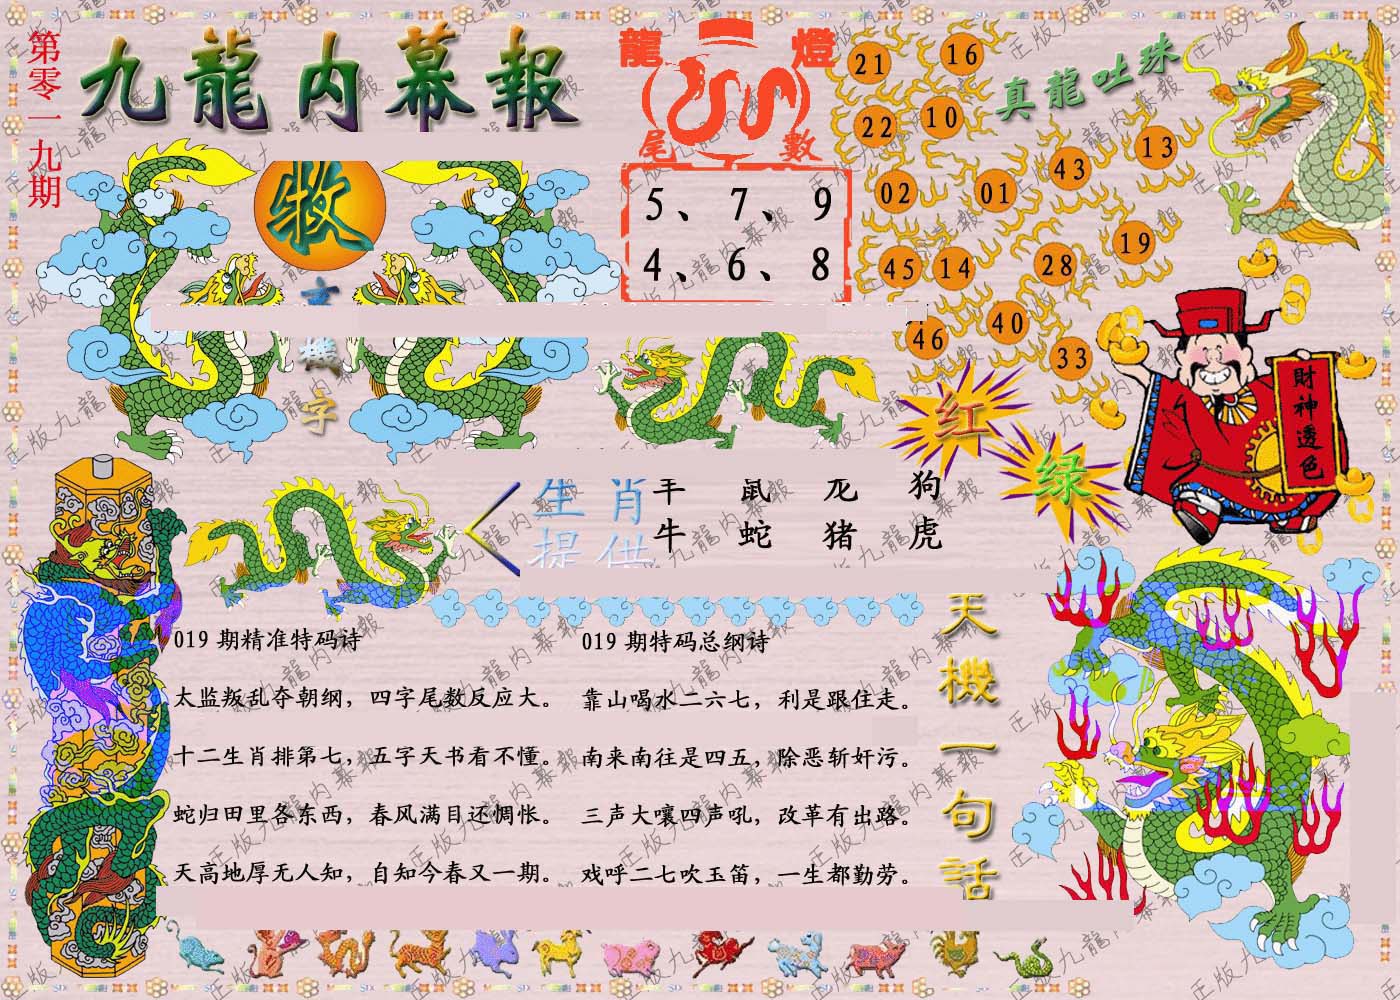 第零一九期
九龍内幕報
龍燈
尾數
5、7、9
4、6、8
真龍吐珠
21
16
22
10
43
13
02
01
19
45
14
28
46
40
33
牧
玄機字
红
绿
財神透色
生肖
提供
羊 鼠 龙 狗
牛 蛇 猪 虎
天機一句話
019 期精准特码诗
太监叛乱夺朝纲，四字尾数反应大。
十二生肖排第七，五字天书看不懂。
蛇归田里各东西，春风满目还惆怅。
天高地厚无人知，自知今春又一期。
019 期特码总纲诗
靠山喝水二六七，利是跟住走。
南来南往是四五，除恶斩奸污。
三声大嚷四声吼，改革有出路。
戏呼二七吹玉笛，一生都勤劳。
正版九龍内幕報